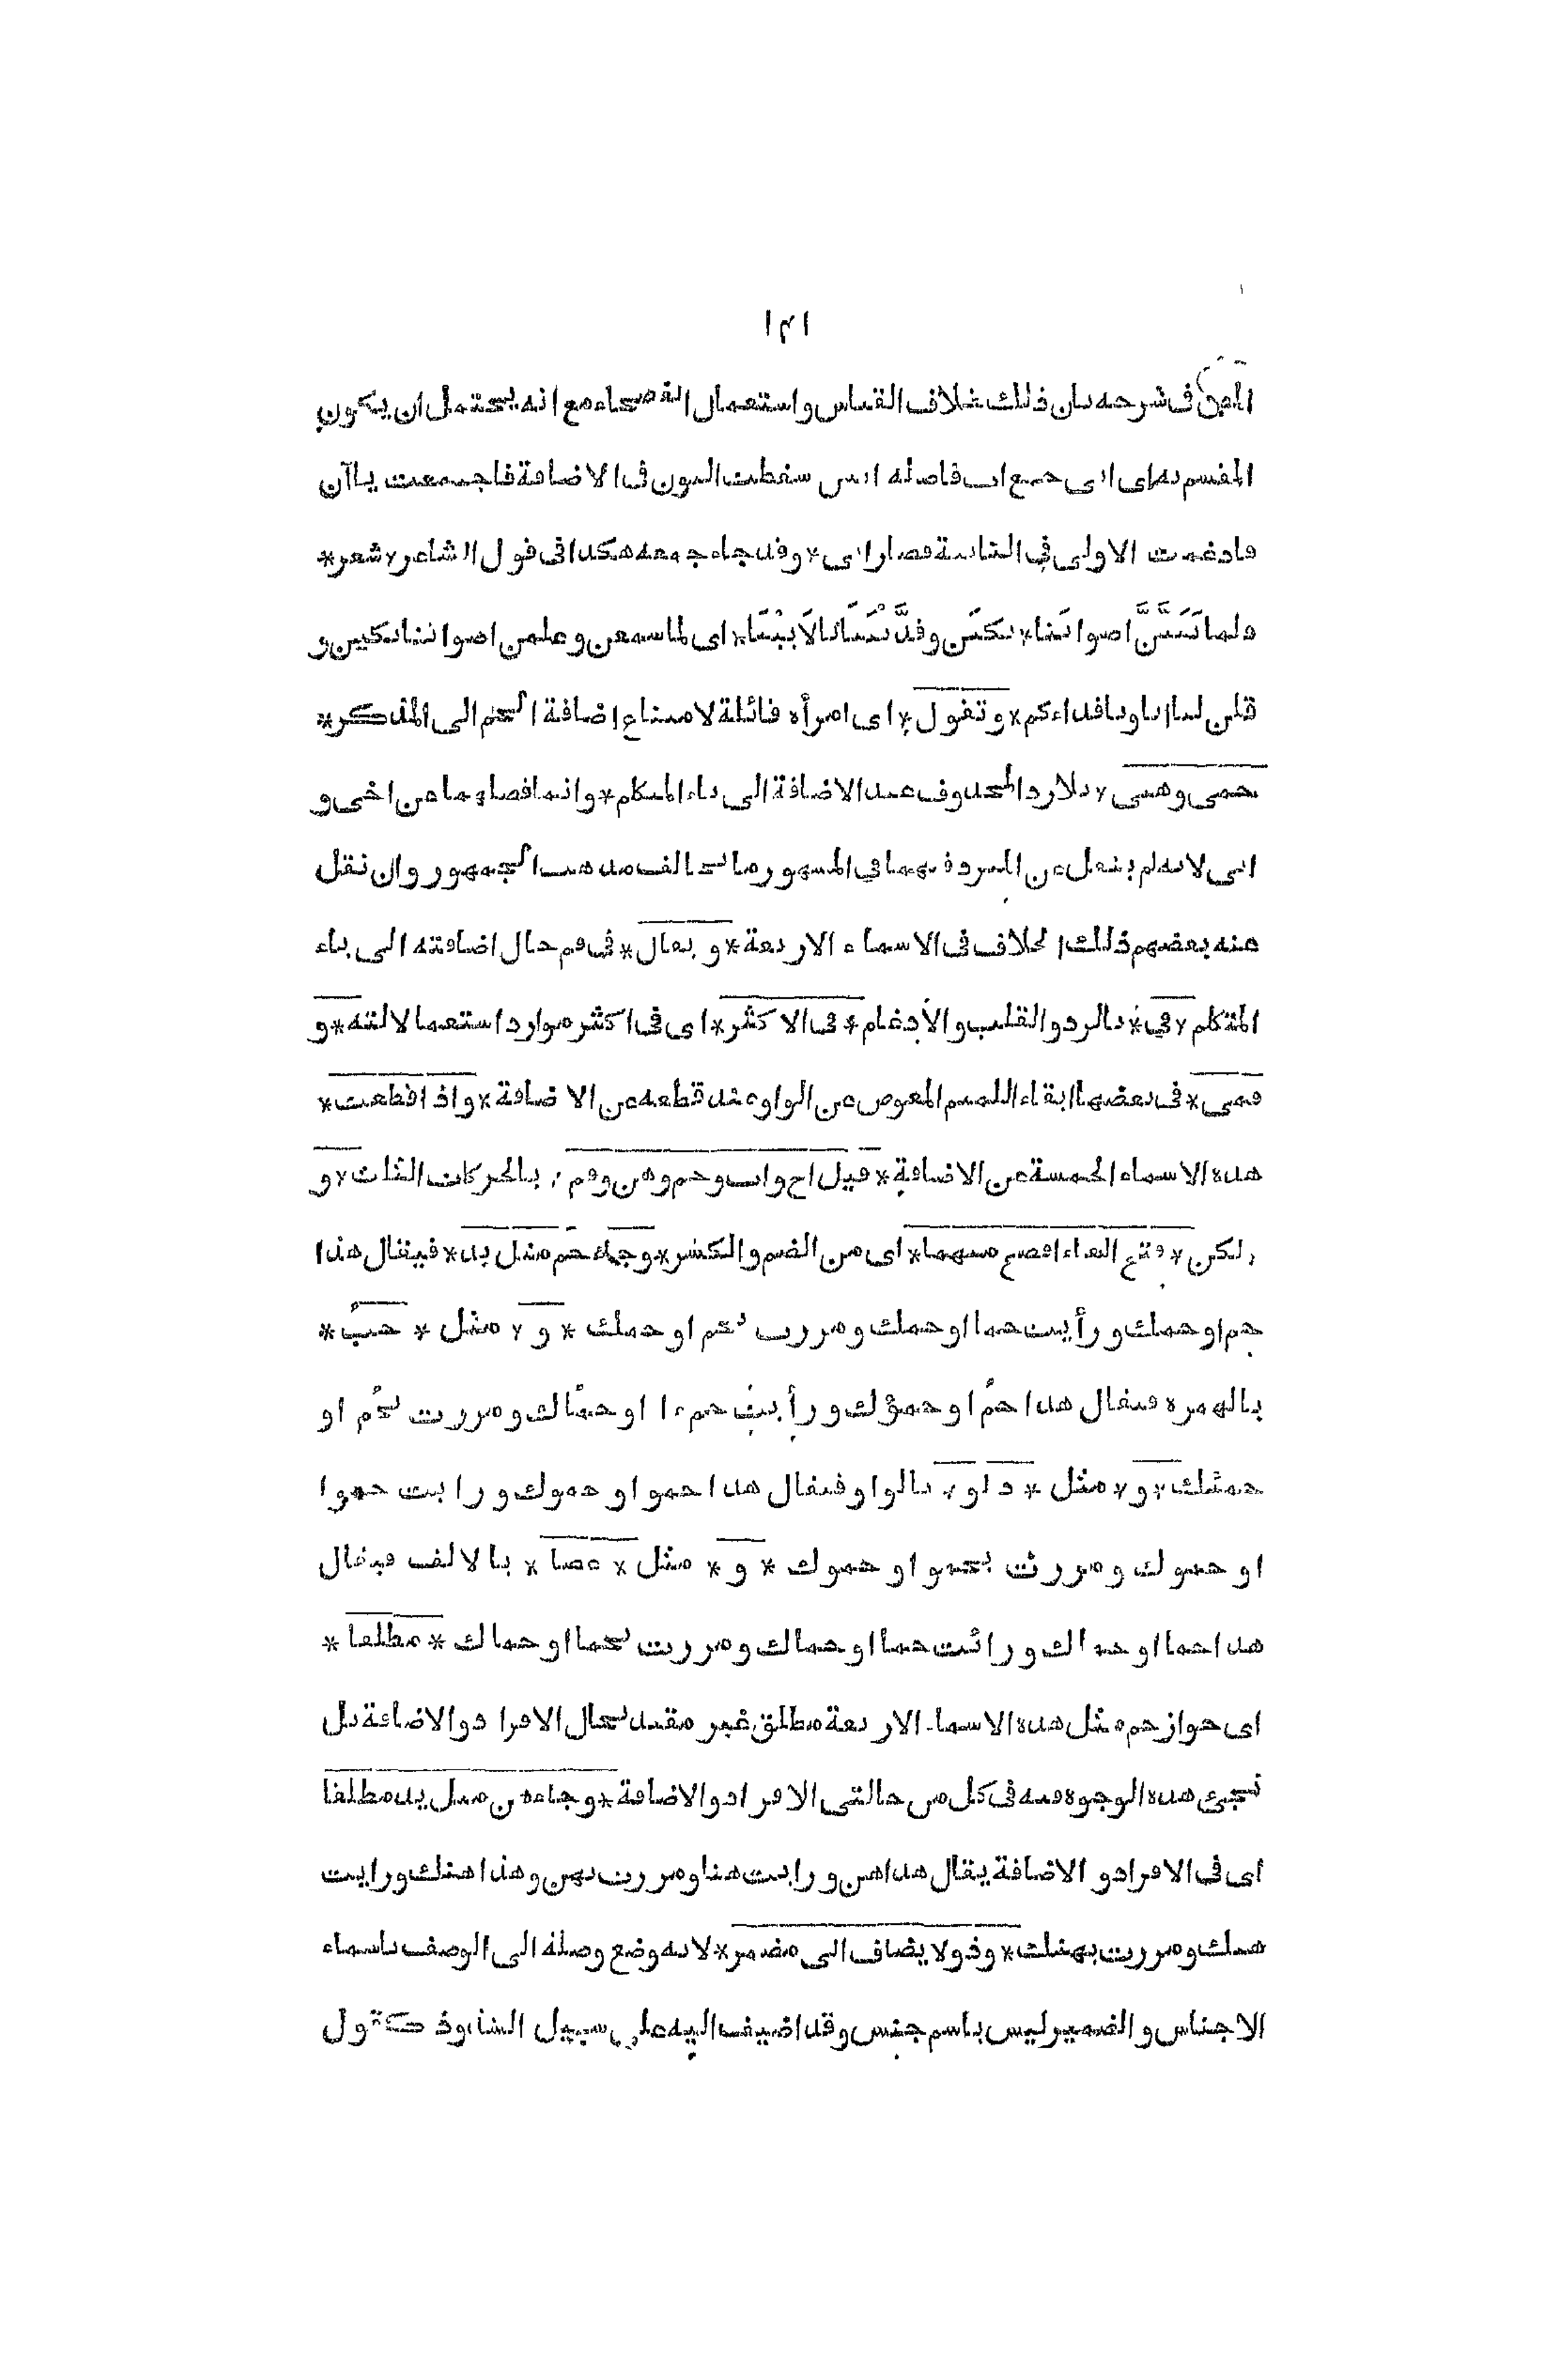 ١٢١
المتن فى شرحه بان ذلك خلاف القياس واستعمال الفصحاء مع انه يحتمل ان يكون
المقسم به اى ابى جمع اب فاصله ابين سقطت النون فى الاضافة فاجتمعت ياآن
فادغمت الاولى فى الثانية فصار ابى * وقد جاء جمعه هكذا فى قول الشاعر * شعر *
فلما تَبَيَّنَّ اصواتَنا * بكَيْن وفدَّيْنَنَا بالاَبِيْنَا * اى لما سمعن وعلمن اصواتنا بكين و
قلن لنا اباؤنا فداءكم * وتقول * اى امرأة قائلة لامتناع اضافة الحم الى المذكر *
حمى وهنى * بلا رد المحذوف عند الاضافة الى ياء المتكلم * وانما فصلهما عن اخى و
ابى لانه لم ينقل عن المبرد فيهما فى المشهور ما يخالف مذهب الجمهور وان نقل
عنه بعضهم ذلك الخلاف فى الاسماء الاربعة * ويقال * فى فم حال اضافته الى ياء
المتكلم * فى * بالرد والقلب والادغام * فى الاكثر * اى فى اكثر موارد استعمالاته * و
فمى * فى بعضها ابقاء للميم المعوض عن الواو عند قطعه عن الاضافة * واذا قطعت *
هذه الاسماء الخمسة عن الاضافة * قيل اخ واب وحم وهن وفم * بالحركات الثلث * و
لكن * فتح الفاء افصح منهما * اى من الضم والكسر * وجاء حم مثل يد * فيقال هذا
حم او حمك ورأيت حما او حمك ومررت بحم او حمك * و * مثل * خبءٌ *
بالهمزة فيقال هذا حمءٌ او حمؤك ورأيت حمءا او حمأك ومررت بحمءٍ او
حمئك * و * مثل * دلو * بالواو فيقال هذا حمو او حموك ورايت حموا
او حموك ومررت بحمو او حموك * و * مثل * عصا * بالالف فيقال
هذا حما او حماك ورائت حما او حماك ومررت بحما او حماك * مطلقا *
اى جواز حم مثل هذه الاسماء الاربعة مطلق غير مقيد بحال الافراد والاضافة بل
تجئ هذه الوجوه فيه فى كل من حالتى الافراد والاضافة * وجاء هن مثل يد مطلقا
اى فى الافراد والاضافة يقال هذا هن ورايت هنا ومررت بهن وهذا هنك ورايت
هنك ومررت بهنك * وذو لا يضاف الى مضمر * لانه وضع وصلة الى الوصف باسماء
الاجناس والضمير ليس باسم جنس وقد اضيف اليه على سبيل الشذوذ كقول